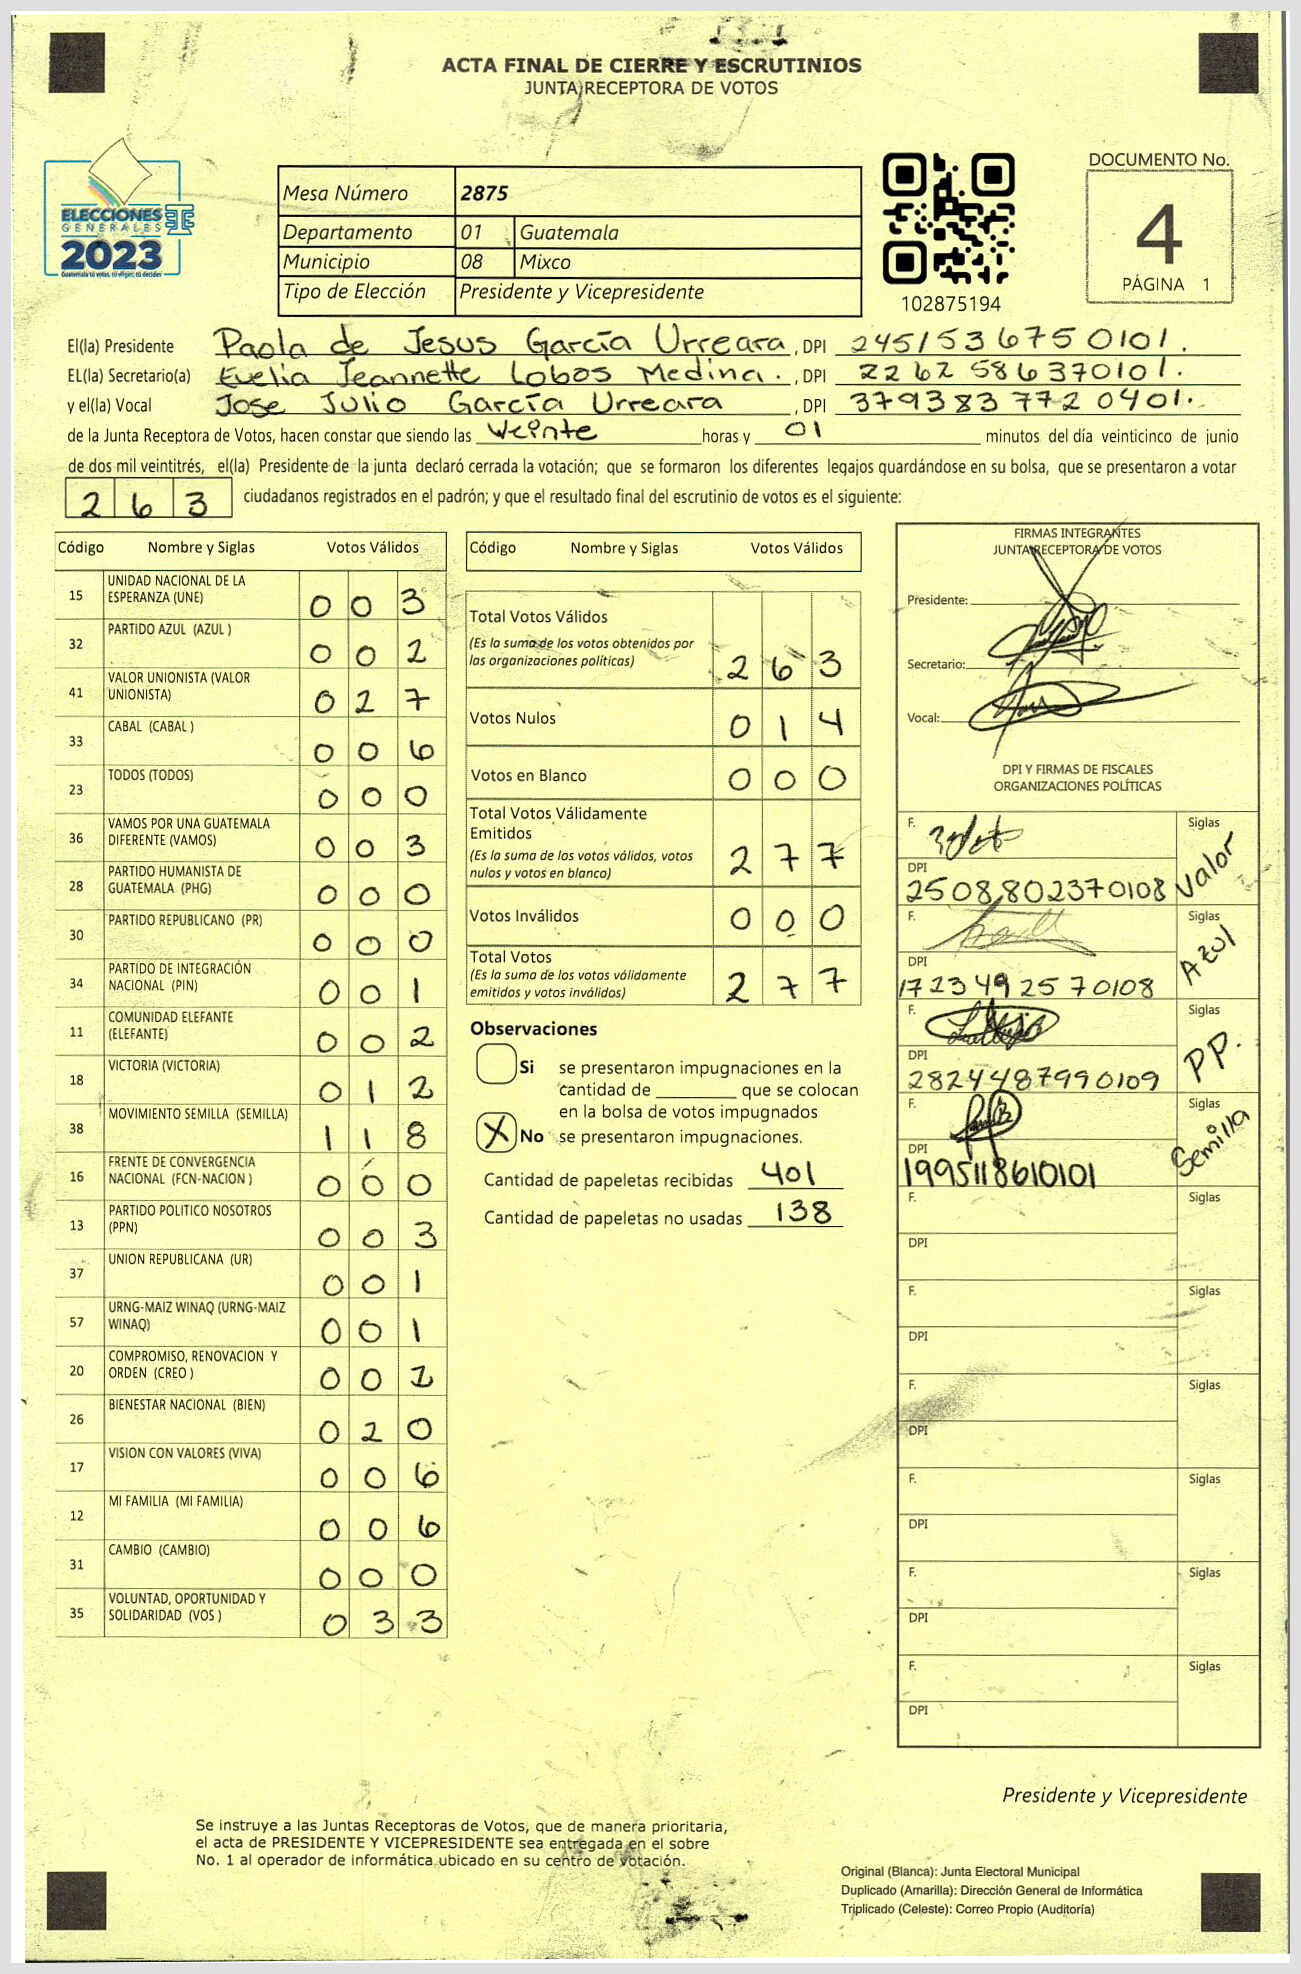 ACTA FINAL DE CIERRE Y ESCRUTINIOS
JUNTA RECEPTORA DE VOTOS
ELECCIONES
GENERALES
2023
Guatemala tú votas, tú eliges, tú decides
Mesa Número 2875
Departamento 01 Guatemala
Municipio 08 Mixco
Tipo de Elección Presidente y Vicepresidente
102875194
DOCUMENTO No.
4
PÁGINA 1
El(la) Presidente Paola de Jesus García Urreara, DPI 2451536750101.
EL(la) Secretario(a) Evelia Jeannette Lobos Medina., DPI 2262586370101.
y el(la) Vocal Jose Julio García Urreara, DPI 3793837720401.
de la Junta Receptora de Votos, hacen constar que siendo las Veinte horas y 01 minutos del día veinticinco de junio
de dos mil veintitrés, el(la) Presidente de la junta declaró cerrada la votación; que se formaron los diferentes legajos guardándose en su bolsa, que se presentaron a votar
263 ciudadanos registrados en el padrón; y que el resultado final del escrutinio de votos es el siguiente:
Código Nombre y Siglas Votos Válidos
15 UNIDAD NACIONAL DE LA ESPERANZA (UNE) 003
32 PARTIDO AZUL (AZUL ) 002
41 VALOR UNIONISTA (VALOR UNIONISTA) 027
33 CABAL (CABAL ) 006
23 TODOS (TODOS) 000
36 VAMOS POR UNA GUATEMALA DIFERENTE (VAMOS) 003
28 PARTIDO HUMANISTA DE GUATEMALA (PHG) 000
30 PARTIDO REPUBLICANO (PR) 000
34 PARTIDO DE INTEGRACIÓN NACIONAL (PIN) 001
11 COMUNIDAD ELEFANTE (ELEFANTE) 002
18 VICTORIA (VICTORIA) 012
38 MOVIMIENTO SEMILLA (SEMILLA) 118
16 FRENTE DE CONVERGENCIA NACIONAL (FCN-NACION ) 000
13 PARTIDO POLITICO NOSOTROS (PPN) 003
37 UNION REPUBLICANA (UR) 001
57 URNG-MAIZ WINAQ (URNG-MAIZ WINAQ) 001
20 COMPROMISO, RENOVACION Y ORDEN (CREO ) 002
26 BIENESTAR NACIONAL (BIEN) 020
17 VISION CON VALORES (VIVA) 006
12 MI FAMILIA (MI FAMILIA) 006
31 CAMBIO (CAMBIO) 000
35 VOLUNTAD, OPORTUNIDAD Y SOLIDARIDAD (VOS ) 033
Código Nombre y Siglas Votos Válidos
Total Votos Válidos
(Es la suma de los votos obtenidos por
las organizaciones políticas) 263
Votos Nulos 014
Votos en Blanco 000
Total Votos Válidamente
Emitidos
(Es la suma de los votos válidos, votos
nulos y votos en blanco) 277
Votos Inválidos 000
Total Votos
(Es la suma de los votos válidamente
emitidos y votos inválidos) 277
Observaciones
Si se presentaron impugnaciones en la
cantidad de ________ que se colocan
en la bolsa de votos impugnados
X No se presentaron impugnaciones.
Cantidad de papeletas recibidas 401
Cantidad de papeletas no usadas 138
FIRMAS INTEGRANTES
JUNTA RECEPTORA DE VOTOS
Presidente:
Secretario:
Vocal:
DPI Y FIRMAS DE FISCALES
ORGANIZACIONES POLÍTICAS
F. Siglas Valor
DPI 2508802370108
F. Siglas Azul
DPI 1723492570108
F. Siglas PP.
DPI 2824487990109
F. Siglas Semilla
DPI 1995118610101
F. Siglas
DPI
F. Siglas
DPI
F. Siglas
DPI
F. Siglas
DPI
F. Siglas
DPI
F. Siglas
DPI
Presidente y Vicepresidente
Se instruye a las Juntas Receptoras de Votos, que de manera prioritaria,
el acta de PRESIDENTE Y VICEPRESIDENTE sea entregada en el sobre
No. 1 al operador de informática ubicado en su centro de votación.
Original (Blanca): Junta Electoral Municipal
Duplicado (Amarilla): Dirección General de Informática
Triplicado (Celeste): Correo Propio (Auditoría)